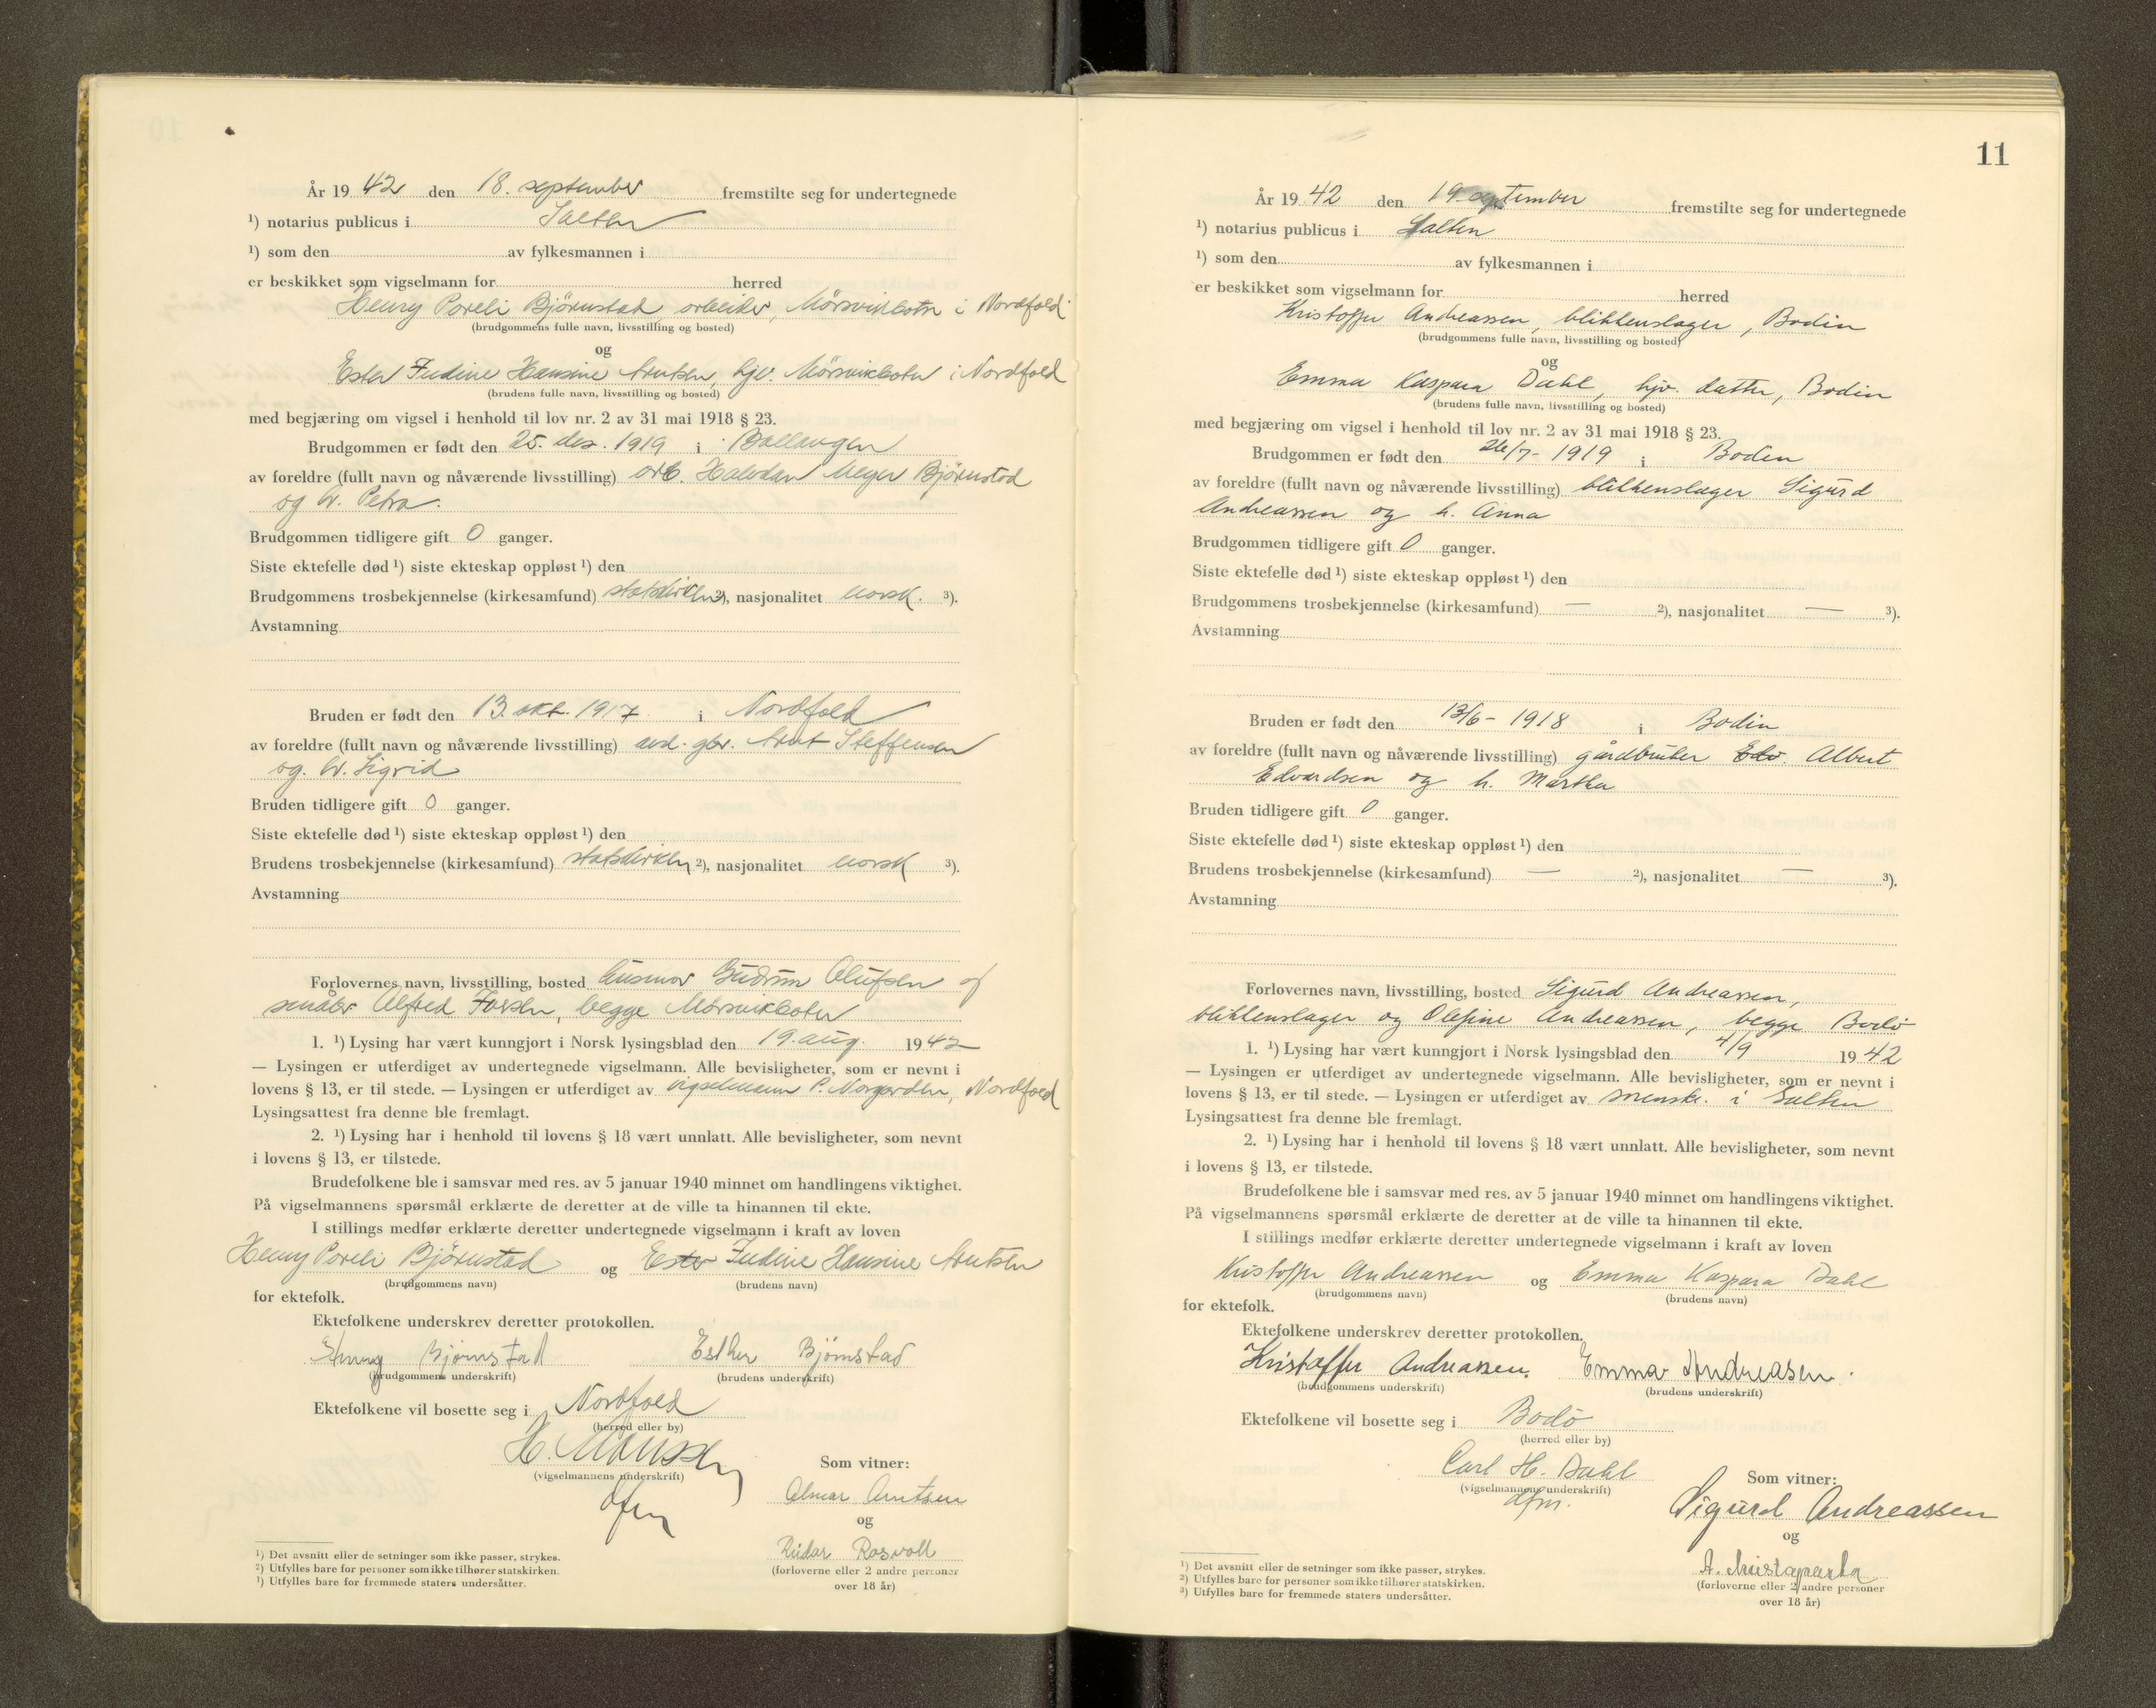 År 19 42 den 18. september fremstilte seg for undertegnede
¹) notarius publicus i Salten
¹) som den av fylkesmannen i
er beskikket som vigselmann for herred
Henry Poreli Bjørnstad arbeider, Mørsvikbotn i Nordfold
(brudgommens fulle navn, livsstilling og bosted)
og
Ester Judine Hansine Arntsen, hjv. Mørsvikbotn i Nordfold
(brudens fulle navn, livsstilling og bosted)
med begjæring om vigsel i henhold til lov nr. 2 av 31 mai 1918 § 23.
Brudgommen er født den 25. des. 1919 i Ballangen
av foreldre (fullt navn og nåværende livsstilling) arb. Halvdan Meyer Bjørnstad
og h. Petra.
Brudgommen tidligere gift 0 ganger.
Siste ektefelle død ¹) siste ekteskap oppløst ¹) den
Brudgommens trosbekjennelse (kirkesamfund) statskirken ²), nasjonalitet norsk. ³).
Avstamning
Bruden er født den 13. okt. 1917 i Nordfold
av foreldre (fullt navn og nåværende livsstilling) avd. gbr. Arnt Steffensen
og h. Sigrid
Bruden tidligere gift 0 ganger.
Siste ektefelle død ¹) siste ekteskap oppløst ¹) den
Brudens trosbekjennelse (kirkesamfund) statskirken ²), nasjonalitet norsk ³).
Avstamning
Forlovernes navn, livsstilling, bosted husmor Gudrun Olufsen og
småbr Alfred Forsen, begge Mørsvikbotn
1. ¹) Lysing har vært kunngjort i Norsk lysingsblad den 19. aug. 1942
— Lysingen er utferdiget av undertegnede vigselmann. Alle bevisligheter, som er nevnt i
lovens § 13, er til stede. — Lysingen er utferdiget av vigselmann P. Norgården, Nordfold
Lysingsattest fra denne ble fremlagt.
2. ¹) Lysing har i henhold til lovens § 18 vært unnlatt. Alle bevisligheter, som nevnt
i lovens § 13, er tilstede.
Brudefolkene ble i samsvar med res. av 5 januar 1940 minnet om handlingens viktighet.
På vigselmannens spørsmål erklærte de deretter at de ville ta hinannen til ekte.
I stillings medfør erklærte deretter undertegnede vigselmann i kraft av loven
Henry Poreli Bjørnstad og Ester Judine Hansine Arntsen
(brudgommens navn) (brudens navn)
for ektefolk.
Ektefolkene underskrev deretter protokollen.
Henry Bjørnstad Esther Bjørnstad
(brudgommens underskrift) (brudens underskrift)
Ektefolkene vil bosette seg i Nordfold
(herred eller by)
(vigselmannens underskrift)
Som vitner:
Almar Arntsen
og
Reidar Rosvoll
(forloverne eller 2 andre personer
over 18 år)
¹) Det avsnitt eller de setninger som ikke passer, strykes.
²) Utfylles bare for personer som ikke tilhører statskirken.
³) Utfylles bare for fremmede staters undersåtter.
11
År 19 42 den 19 september fremstilte seg for undertegnede
¹) notarius publicus i Salten
¹) som den av fylkesmannen i
er beskikket som vigselmann for herred
Kristoffer Andreassen, blikkenslager, Bodin
(brudgommens fulle navn, livsstilling og bosted)
og
Emma Kaspara Dahl, hjv. datter, Bodin
(brudens fulle navn, livsstilling og bosted)
med begjæring om vigsel i henhold til lov nr. 2 av 31 mai 1918 § 23.
Brudgommen er født den 26/7 - 1919 i Bodin
av foreldre (fullt navn og nåværende livsstilling) blikkenslager Sigurd
Andreassen og h. Anna
Brudgommen tidligere gift 0 ganger.
Siste ektefelle død ¹) siste ekteskap oppløst ¹) den
Brudgommens trosbekjennelse (kirkesamfund) — ²), nasjonalitet — ³).
Avstamning
Bruden er født den 13/6 - 1918 i Bodin
av foreldre (fullt navn og nåværende livsstilling) gårdbruker Edv. Albert
Edvardsen og h. Martha
Bruden tidligere gift 0 ganger.
Siste ektefelle død ¹) siste ekteskap oppløst ¹) den
Brudens trosbekjennelse (kirkesamfund) — ²), nasjonalitet — ³).
Avstamning
Forlovernes navn, livsstilling, bosted Sigurd Andreassen,
blikkenslager og Olefine Andreassen, begge Bodø
1. ¹) Lysing har vært kunngjort i Norsk lysingsblad den 4/9 1942
— Lysingen er utferdiget av undertegnede vigselmann. Alle bevisligheter, som er nevnt i
lovens § 13, er til stede. — Lysingen er utferdiget av sorenskr. i Salten
Lysingsattest fra denne ble fremlagt.
2. ¹) Lysing har i henhold til lovens § 18 vært unnlatt. Alle bevisligheter, som nevnt
i lovens § 13, er tilstede.
Brudefolkene ble i samsvar med res. av 5 januar 1940 minnet om handlingens viktighet.
På vigselmannens spørsmål erklærte de deretter at de ville ta hinannen til ekte.
I stillings medfør erklærte deretter undertegnede vigselmann i kraft av loven
Kristoffer Andreassen og Emma Kaspara Dahl
(brudgommens navn) (brudens navn)
for ektefolk.
Ektefolkene underskrev deretter protokollen.
Kristoffer Andreassen. Emma Andreasen.
(brudgommens underskrift) (brudens underskrift)
Ektefolkene vil bosette seg i Bodø
(herred eller by)
Carl H. Dahl
(vigselmannens underskrift)
dfm.
Som vitner:
Sigurd Andreassen
og
(forloverne eller 2 andre personer
over 18 år)
¹) Det avsnitt eller de setninger som ikke passer, strykes.
²) Utfylles bare for personer som ikke tilhører statskirken.
³) Utfylles bare for fremmede staters undersåtter.